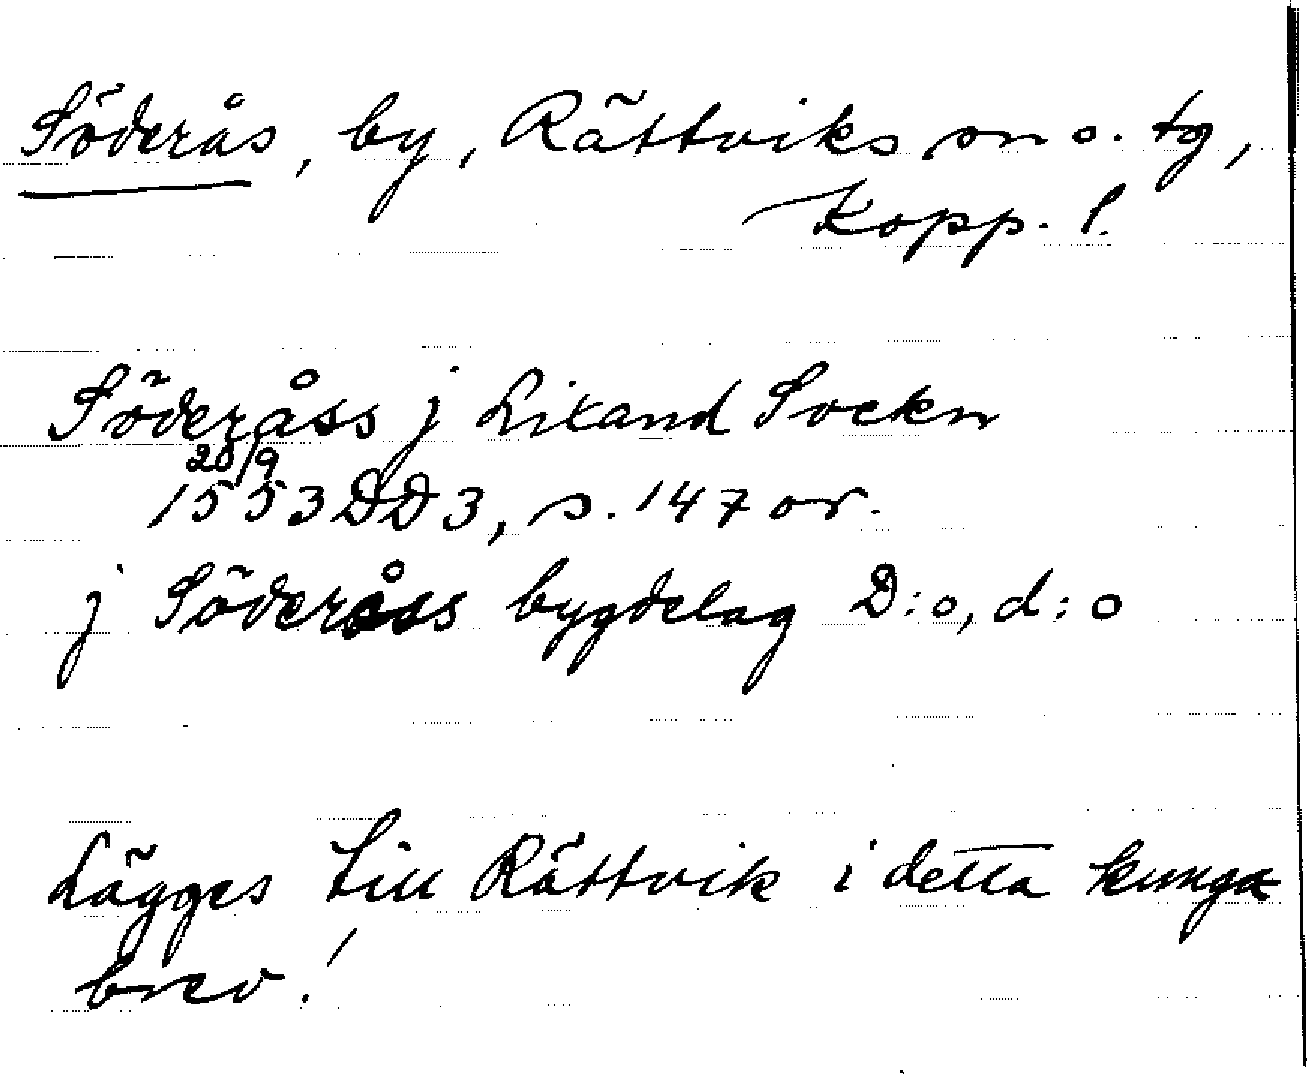 Söderås, by, Rättviks sn o. tg,
Kopp. l.
Söderåss j Lixand Sockn
20/9
1553 DD 3, s. 147 or.
j Söderåss bygdelag D:o, d:o
Lägges till Rättvik i detta kunga
brev!